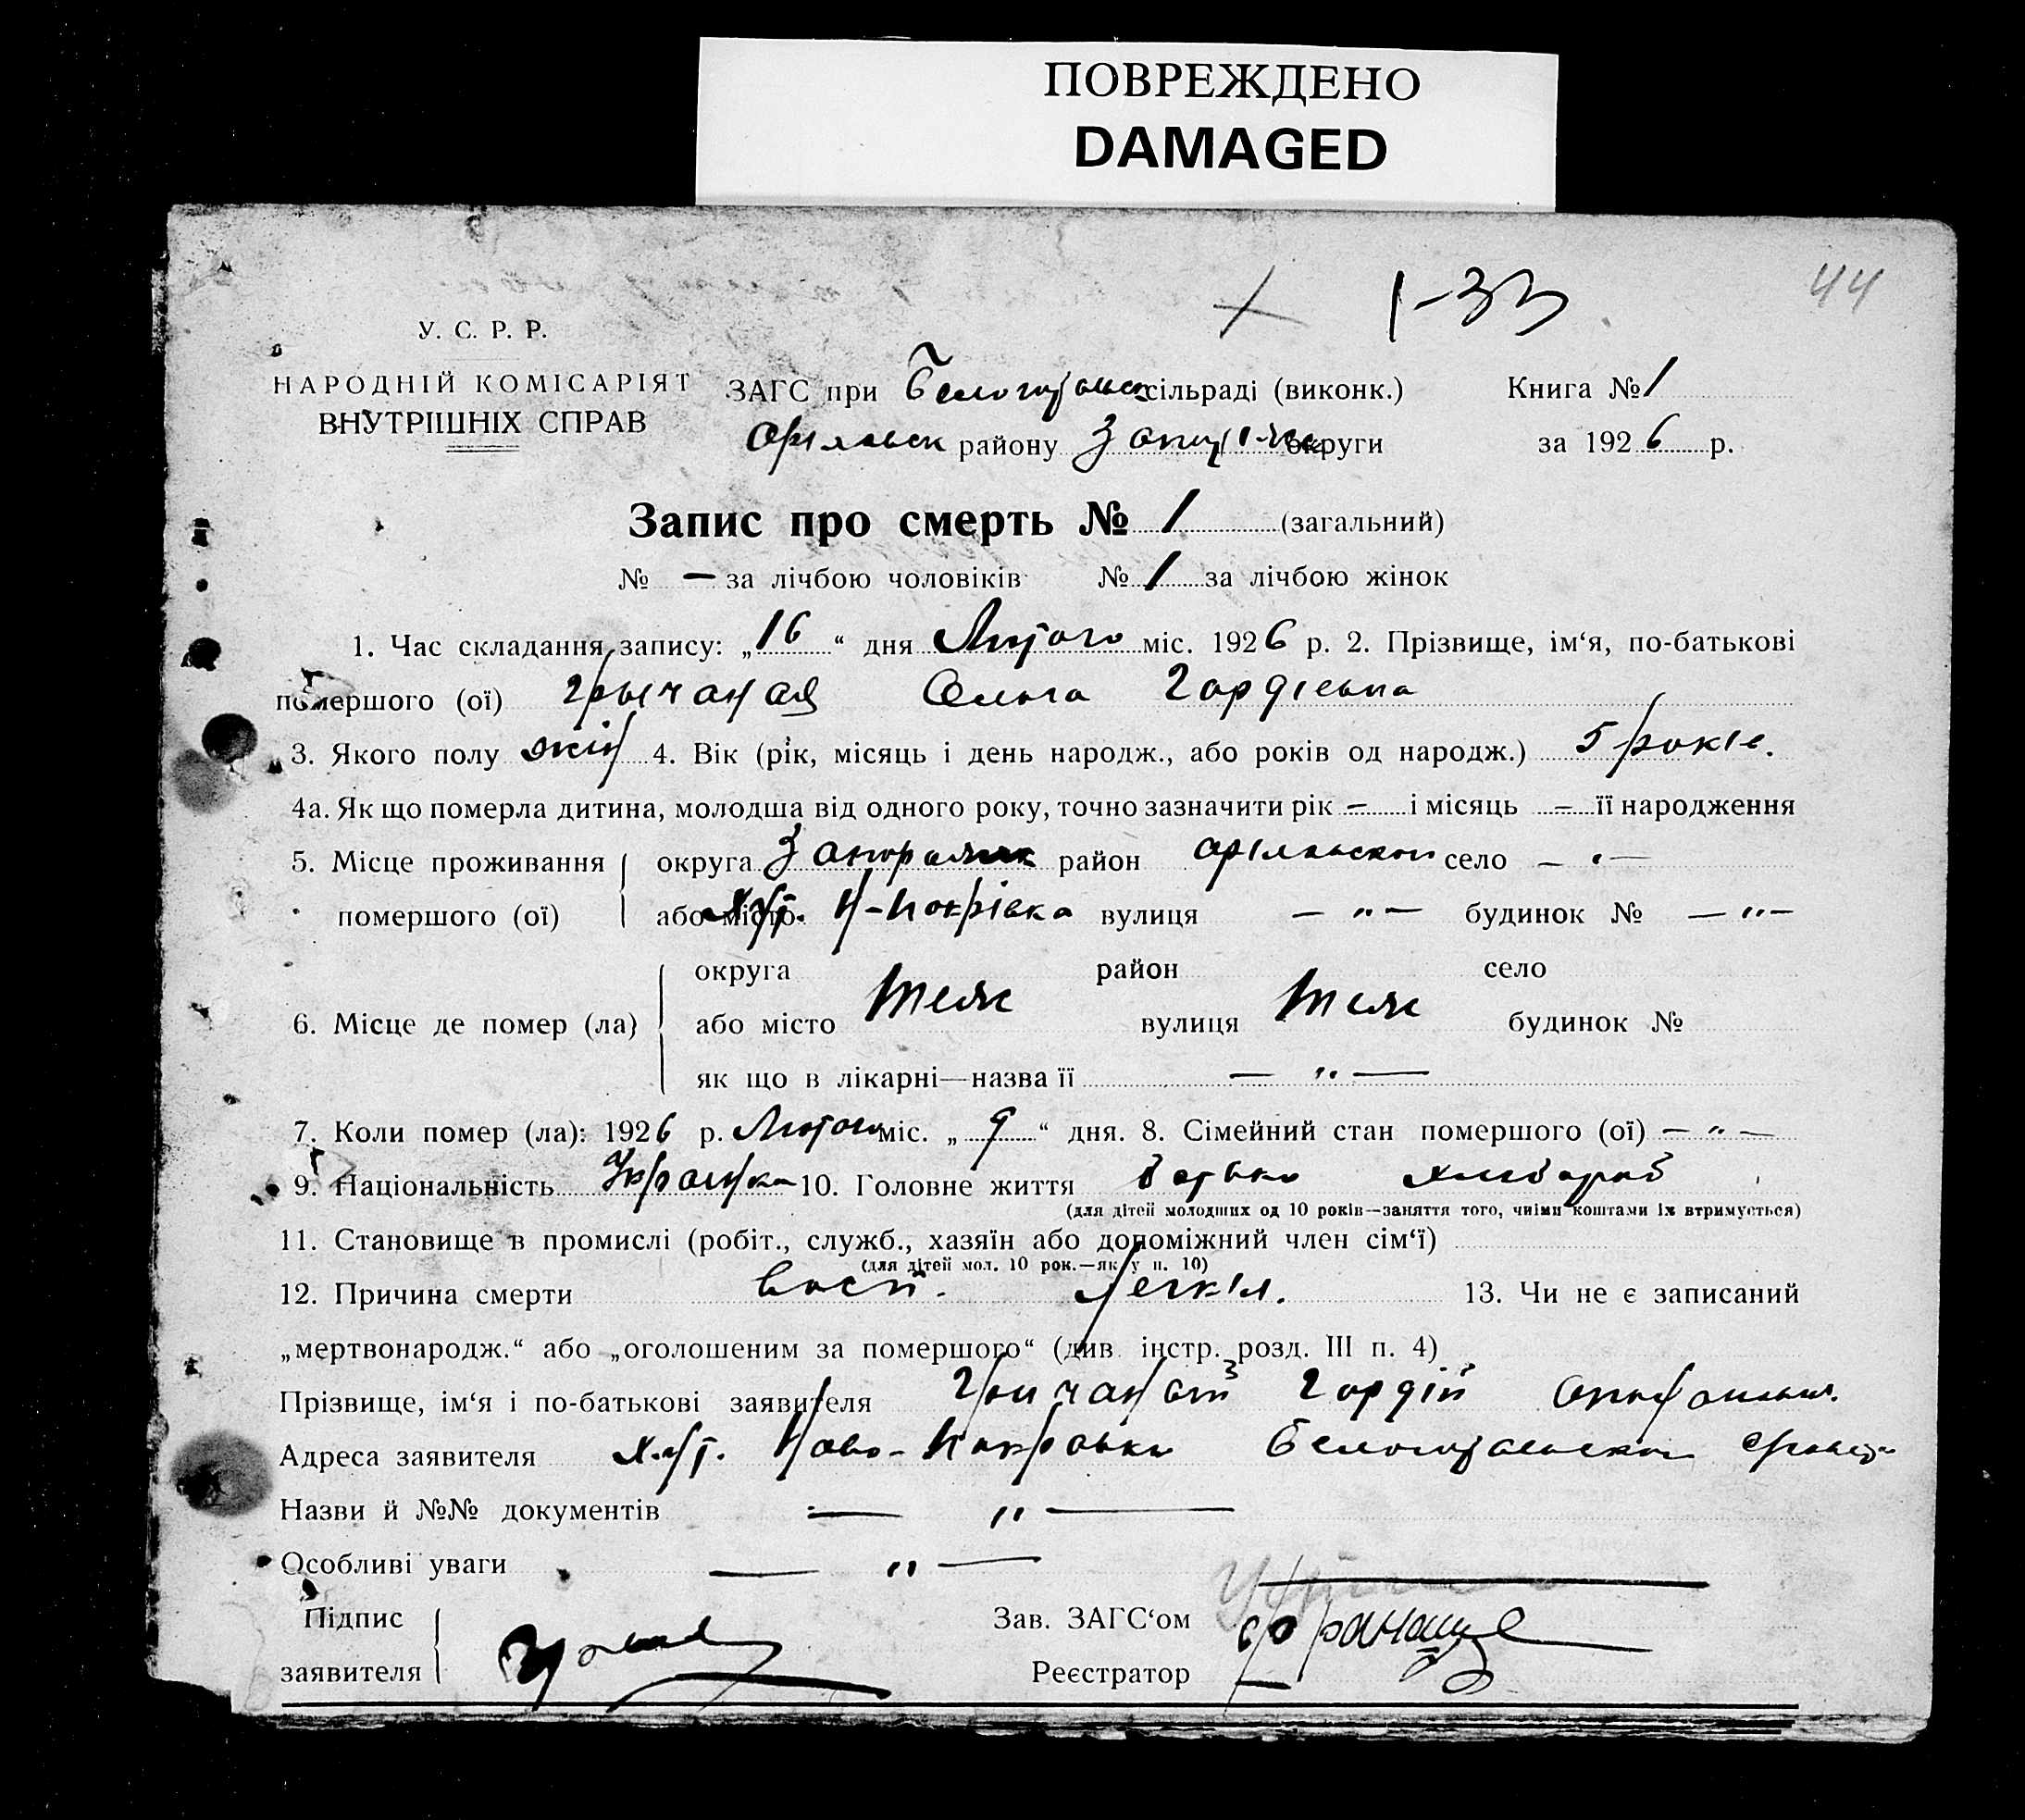 ПОВРЕЖДЕНО
DAMAGED
1-33
44
У. С. Р. Р.
НАРОДНІЙ КОМІСАРІЯТ
ВНУТРІШНІХ СПРАВ
ЗАГС при сільраді (виконк.) Книга № 1
району округи за 1926 р.
Запис про смерть № 1 (загальний)
№ — за лічбою чоловіків № 1 за лічбою жінок
1. Час складання запису: „16“ дня Лютого міс. 1926 р. 2. Прізвище, ім‘я, по-батькові
помершого (ої) Грычаная Ольга Гордіевна
3. Якого полу жін 4. Вік (рік, місяць і день народж., або років од народж.) 5 років.
4а. Як що померла дитина, молодша від одного року, точно зазначити рік — і місяць — її народження
5. Місце проживання округа район село — " —
помершого (ої) або місто хут. Н-Покрівка вулиця — " — будинок № — " —
округа район село
6. Місце де помер (ла) або місто теж вулиця теж будинок №
як що в лікарні—назва її — " —
7. Коли помер (ла): 1926 р. Лютого міс. „9“ дня. 8. Сімейний стан помершого (ої) — " —
9. Національність Українка 10. Головне життя батько хлібороб
(для дітей молодших од 10 років—заняття того, чиїми коштами їх втримується)
11. Становище в промислі (робіт., служб., хазяїн або допоміжний член сім‘ї)
(для дітей мол. 10 рок.—як у п. 10)
12. Причина смерти восп. легкіх. 13. Чи не є записаний
„мертвонародж.“ або „оголошеним за помершого“ (див. інстр. розд. III п. 4)
Прізвище, ім‘я і по-батькові заявителя Гордій
Адреса заявителя хут. Ново-Покровка
Назви й №№ документів — " —
Особливі уваги — " —
Підпис Зав. ЗАГС‘ом
заявителя Реєстратор